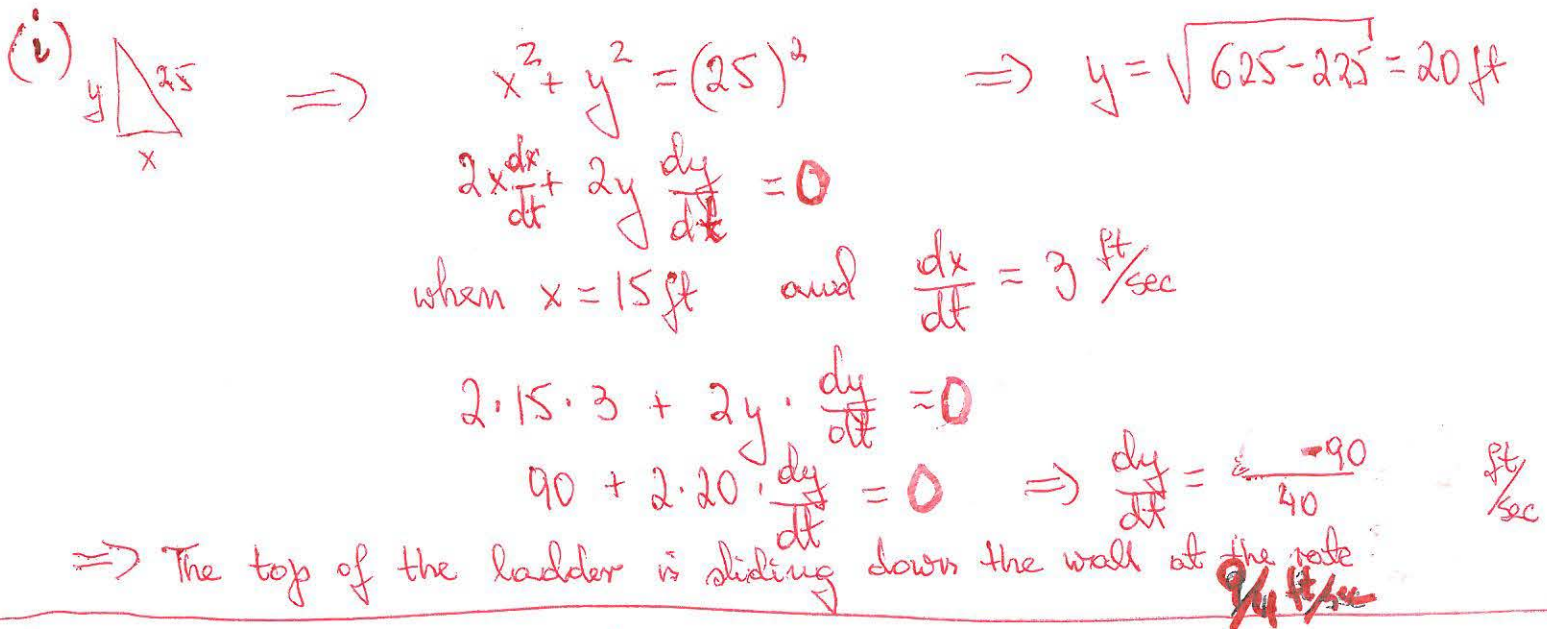 (i) y 25 x ⇒ x² + y² = (25)² ⇒ y = √(625-225) = 20 ft
2x dx/dt + 2y dy/dt = 0
when x = 15 ft and dx/dt = 3 ft/sec
2·15·3 + 2y · dy/dt = 0
90 + 2·20 · dy/dt = 0 ⇒ dy/dt = -90/40 ft/sec
⇒ The top of the ladder is sliding down the wall at the rate
9/4 ft/sec